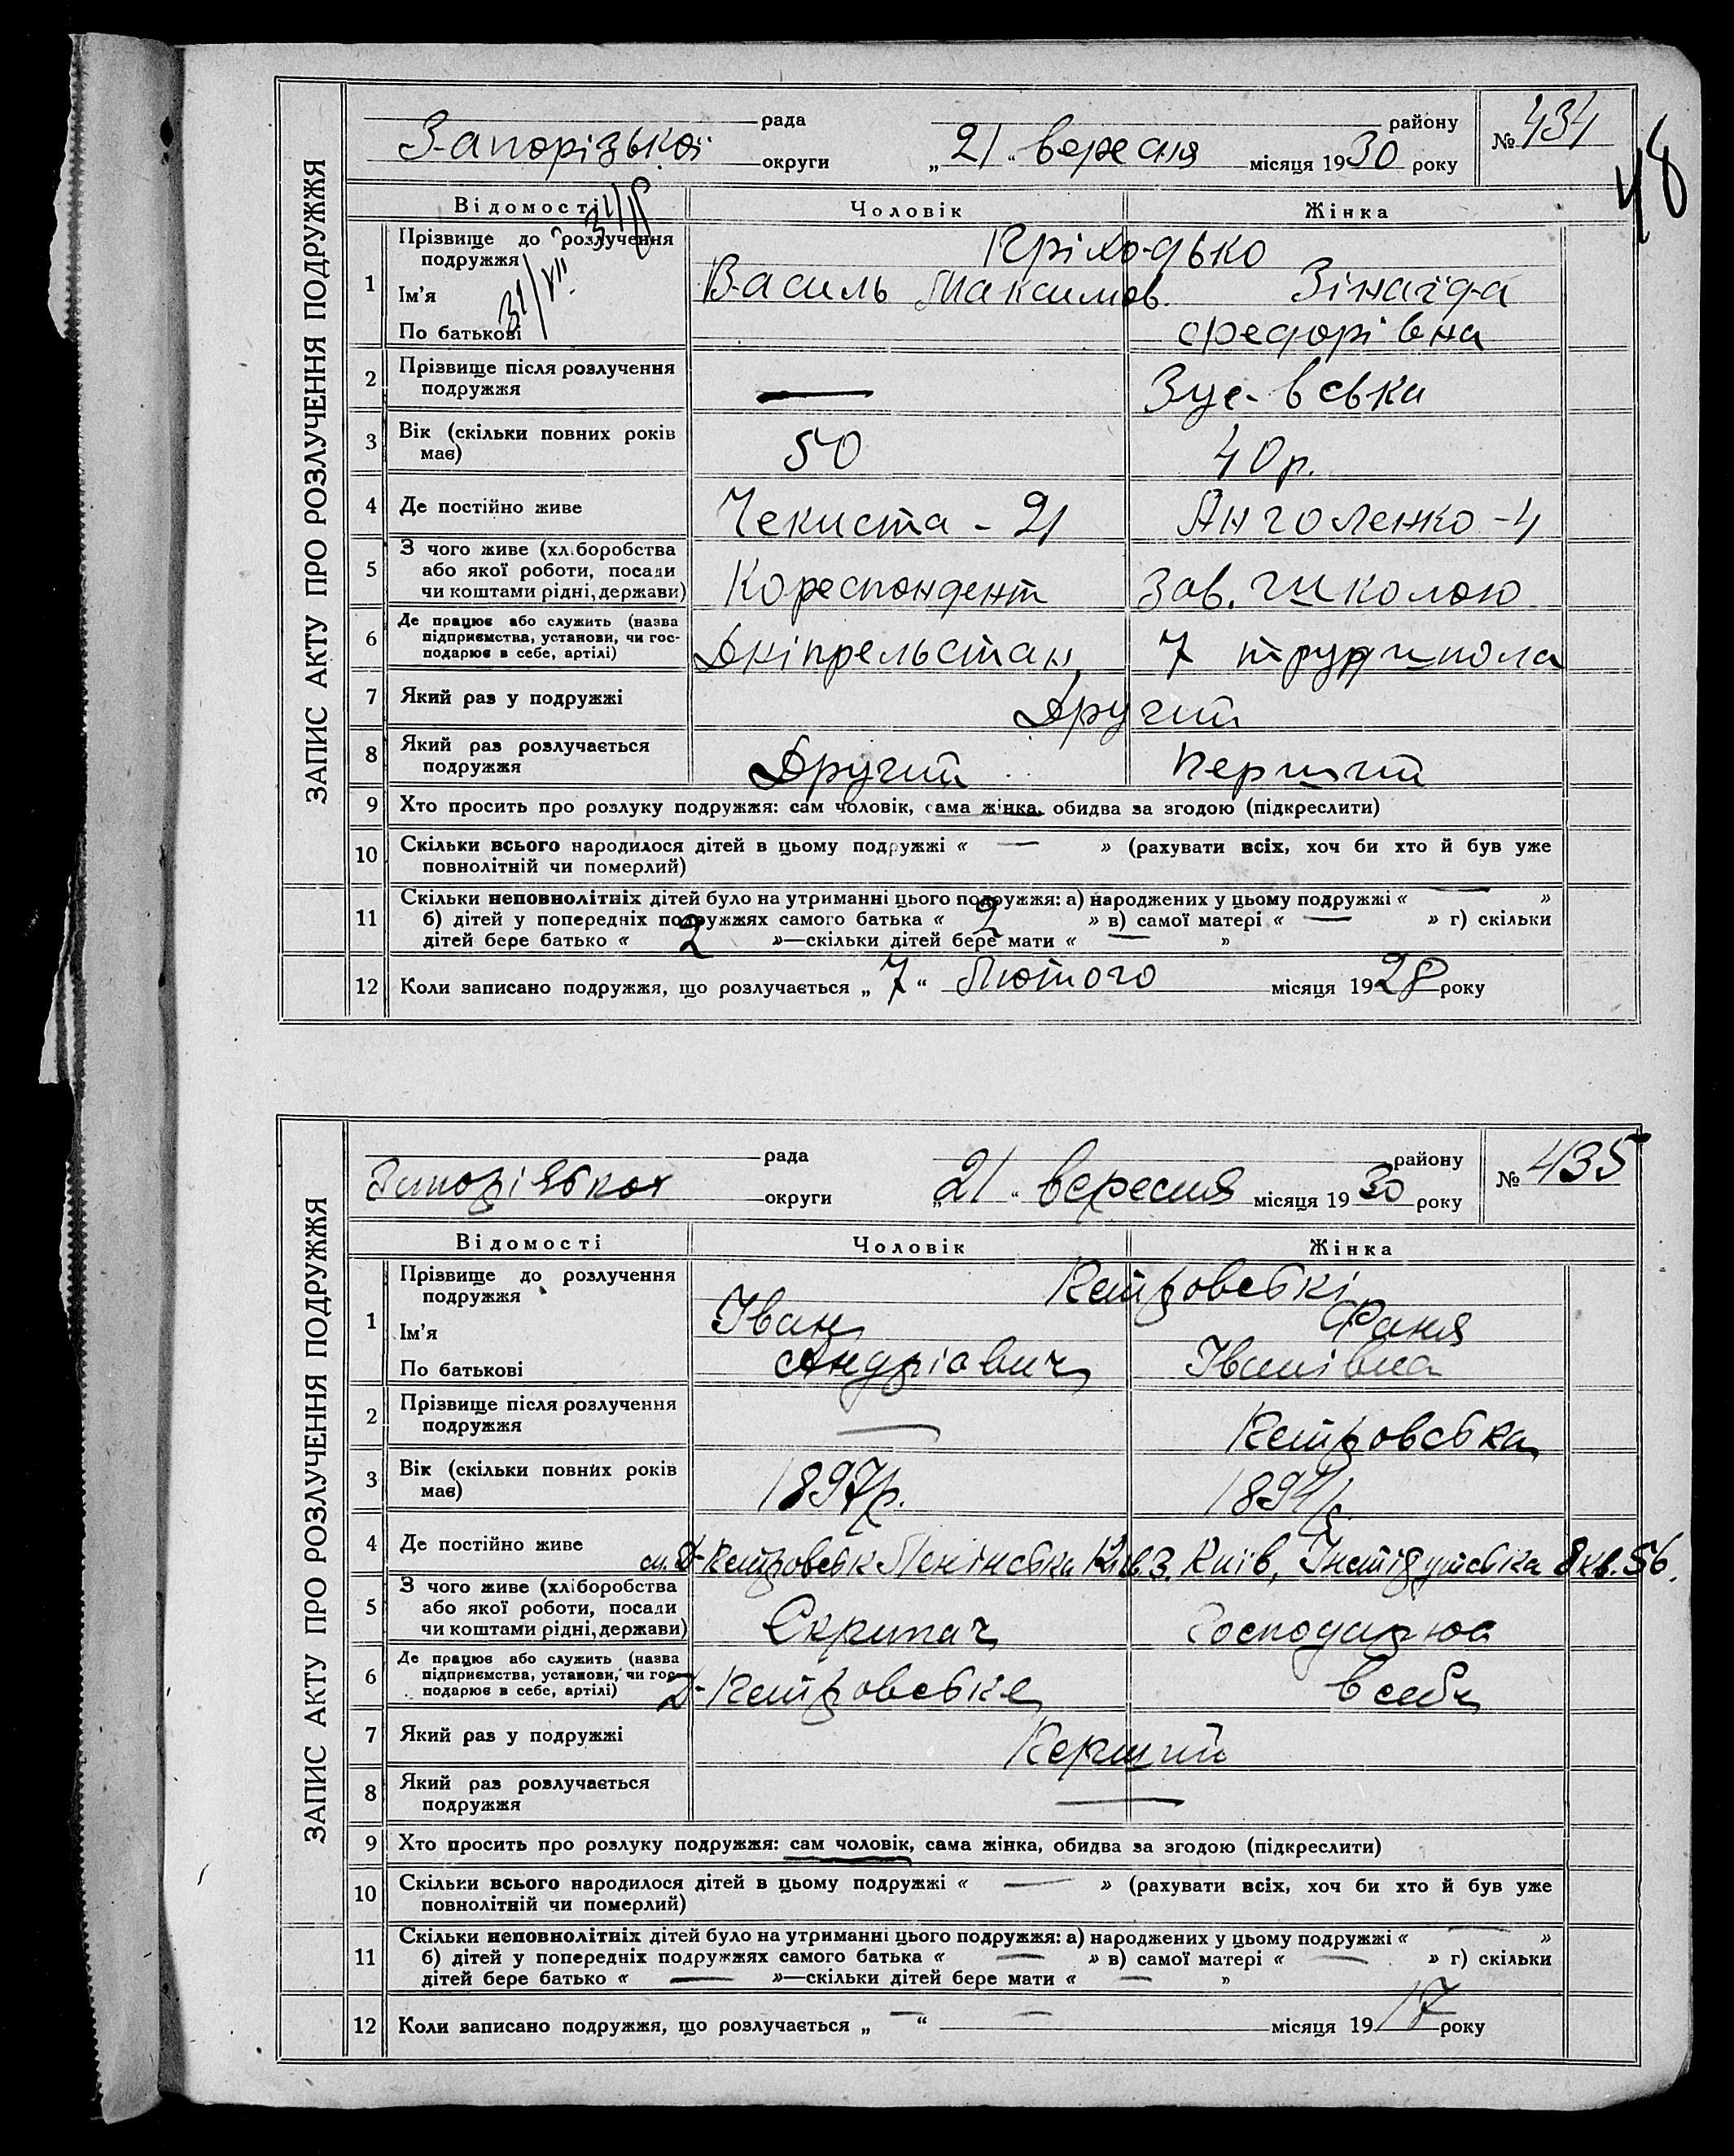 ЗАПИС АКТУ ПРО РОЗЛУЧЕННЯ ПОДРУЖЖЯ
рада району № 434
Запорізької округи „21“ вересня місяця 1930 року
48
Відомості Чоловік Жінка
1 Прізвище до розлучення подружжя Пріходько
Ім'я Василь Максимов. Зінаїда
По батькові Федорівна
2 Прізвище після розлучення
подружжя — Зуєвська
3 Вік (скільки повних років
має) 50 40 р.
4 Де постійно живе Чекиста - 21 Анголенко - 4
5 З чого живе (хліборобства
або якої роботи, посади
чи коштами рідні, держави) Кореспондент Зав. школою
6 Де працює або служить (назва
підприємства, установи, чи гос-
подарює в себе, артілі) Дніпрельстан 7 трудшкола
7 Який раз у подружжі Другий
8 Який раз розлучається
подружжя Другий Перший
9 Хто просить про розлуку подружжя: сам чоловік, сама жінка, обидва за згодою (підкреслити)
10 Скільки всього народилося дітей в цьому подружжі « — » (рахувати всіх, хоч би хто й був уже
повнолітній чи померлий)
11 Скільки неповнолітніх дітей було на утриманні цього подружжя: а) народжених у цьому подружжі « — »
б) дітей у попередніх подружжях самого батька « 2 » в) самої матері « — » г) скільки
дітей бере батько « 2 »—скільки дітей бере мати « — »
12 Коли записано подружжя, що розлучається „7“ Лютого місяця 1928 року
ЗАПИС АКТУ ПРО РОЗЛУЧЕННЯ ПОДРУЖЖЯ
рада району № 435
Запорізькоі округи „21“ вересня місяця 1930 року
Відомості Чоловік Жінка
1 Прізвище до розлучення
подружжя Петровські
Ім'я Іван Фаня
По батькові Андрієвич Іванівна
2 Прізвище після розлучення
подружжя — Петровська
3 Вік (скільки повних років
має) 1897р. 1894р.
4 Де постійно живе Д-Петровськ Ленінська Київ, Інстітутська 8 кв. 56.
5 З чого живе (хліборобства
або якої роботи, посади
чи коштами рідні, держави) Скрипач Господарює
6 Де працює або служить (назва
підприємства, установи, чи гос-
подарює в себе, артілі) Д-Петровське в себе
7 Який раз у подружжі Перший
8 Який раз розлучається
подружжя —
9 Хто просить про розлуку подружжя: сам чоловік, сама жінка, обидва за згодою (підкреслити)
10 Скільки всього народилося дітей в цьому подружжі « — » (рахувати всіх, хоч би хто й був уже
повнолітній чи померлий)
11 Скільки неповнолітніх дітей було на утриманні цього подружжя: а) народжених у цьому подружжі « — »
б) дітей у попередніх подружжях самого батька « — » в) самої матері « — » г) скільки
дітей бере батько « — »—скільки дітей бере мати « — »
12 Коли записано подружжя, що розлучається „ — “ — місяця 1917 року